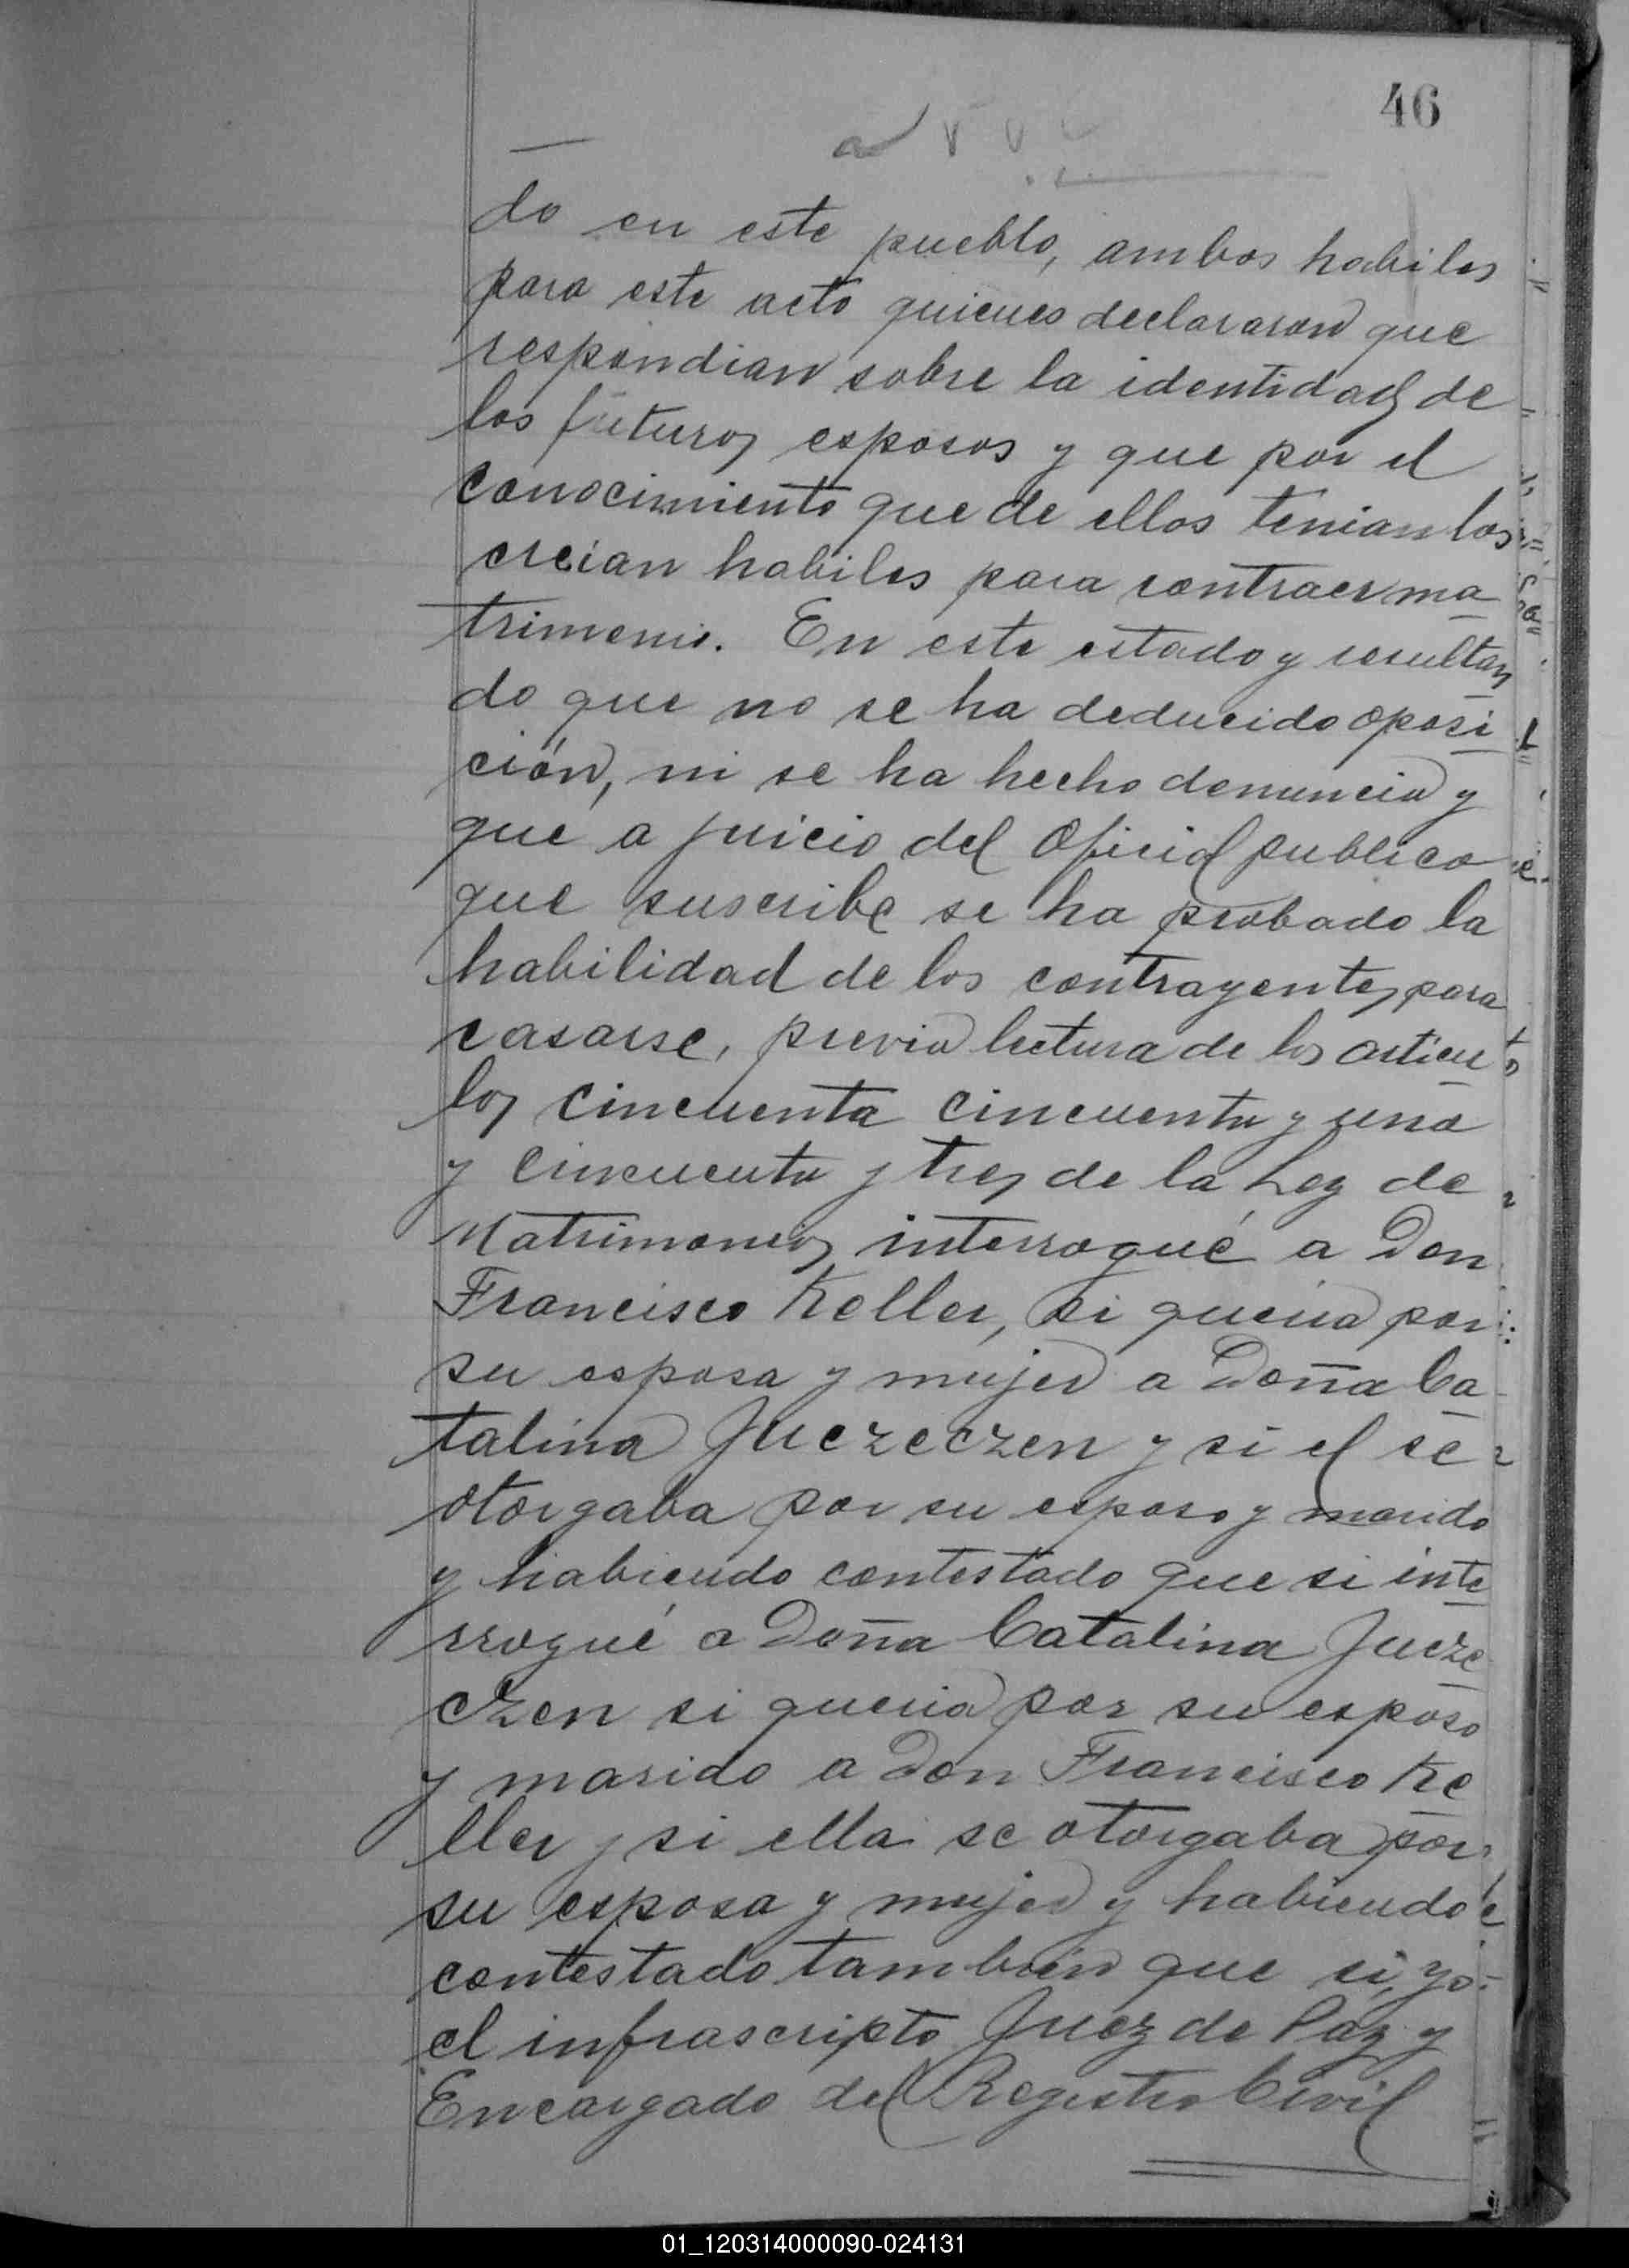 46
do en este pueblo, ambos habiles
para este acto quienes declararon que
respondian sobre la identidad de
los futuros esposos y que por el
conocimiento que de ellos tenian los
creian habiles para contraer ma
trimonio. En este estado y resultan
do que no se ha deducido oposi
ción, ni se ha hecho denuncia y
que a juicio del Oficial publico
que suscribe se ha probado la
habilidad de los contrayentes para
casarse, previa lectura de los articu
los cincuenta cincuenta y uno
y cincuenta y tres de la Ley de
Matrimonios interrogué a Don
Francisco Keller, si queria por
su esposa y mujer a Doña Ca
talina Juezeczen y si el se
otorgaba por su esposo y marido
y habiendo contestado que si inte
rrogué a Doña Catalina Jueze
czen si queria por su esposo
y marido a Don Francisco Ke
ller y si ella se otorgaba por
su esposa y mujer y habiendo
contestado tambien que si, yo
el infrascripto Juez de Paz y
Encargado del Registro Civil
01_120314000090-024131